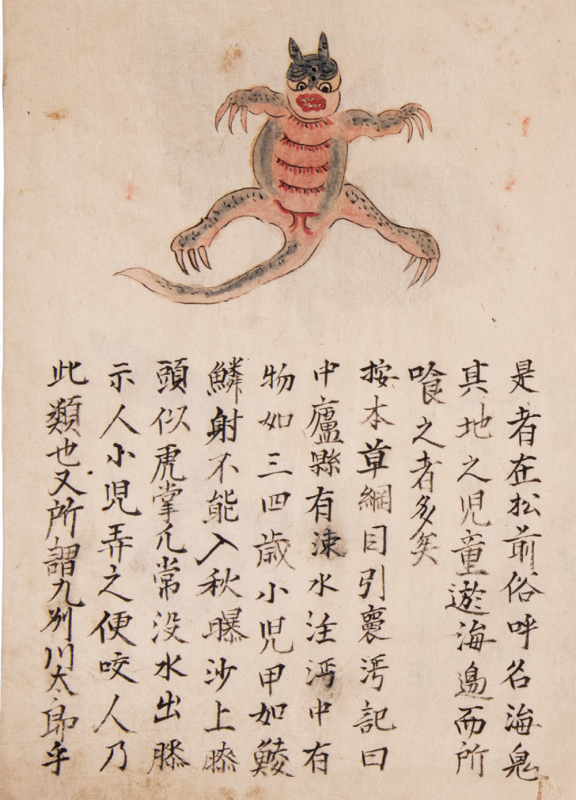 是者在松前俗呼名海鬼
其地之児童遊海邉而所
喰之者多矣
按本草綱目引襄沔記曰
中廬縣有涑水注沔中有
物如三四歳小児甲如鯪
鱗射不能入秋曝沙上膝
頭似虎掌爪常没水出膝
示人小児弄之便咬人乃
此類也又所謂九州川太郎乎